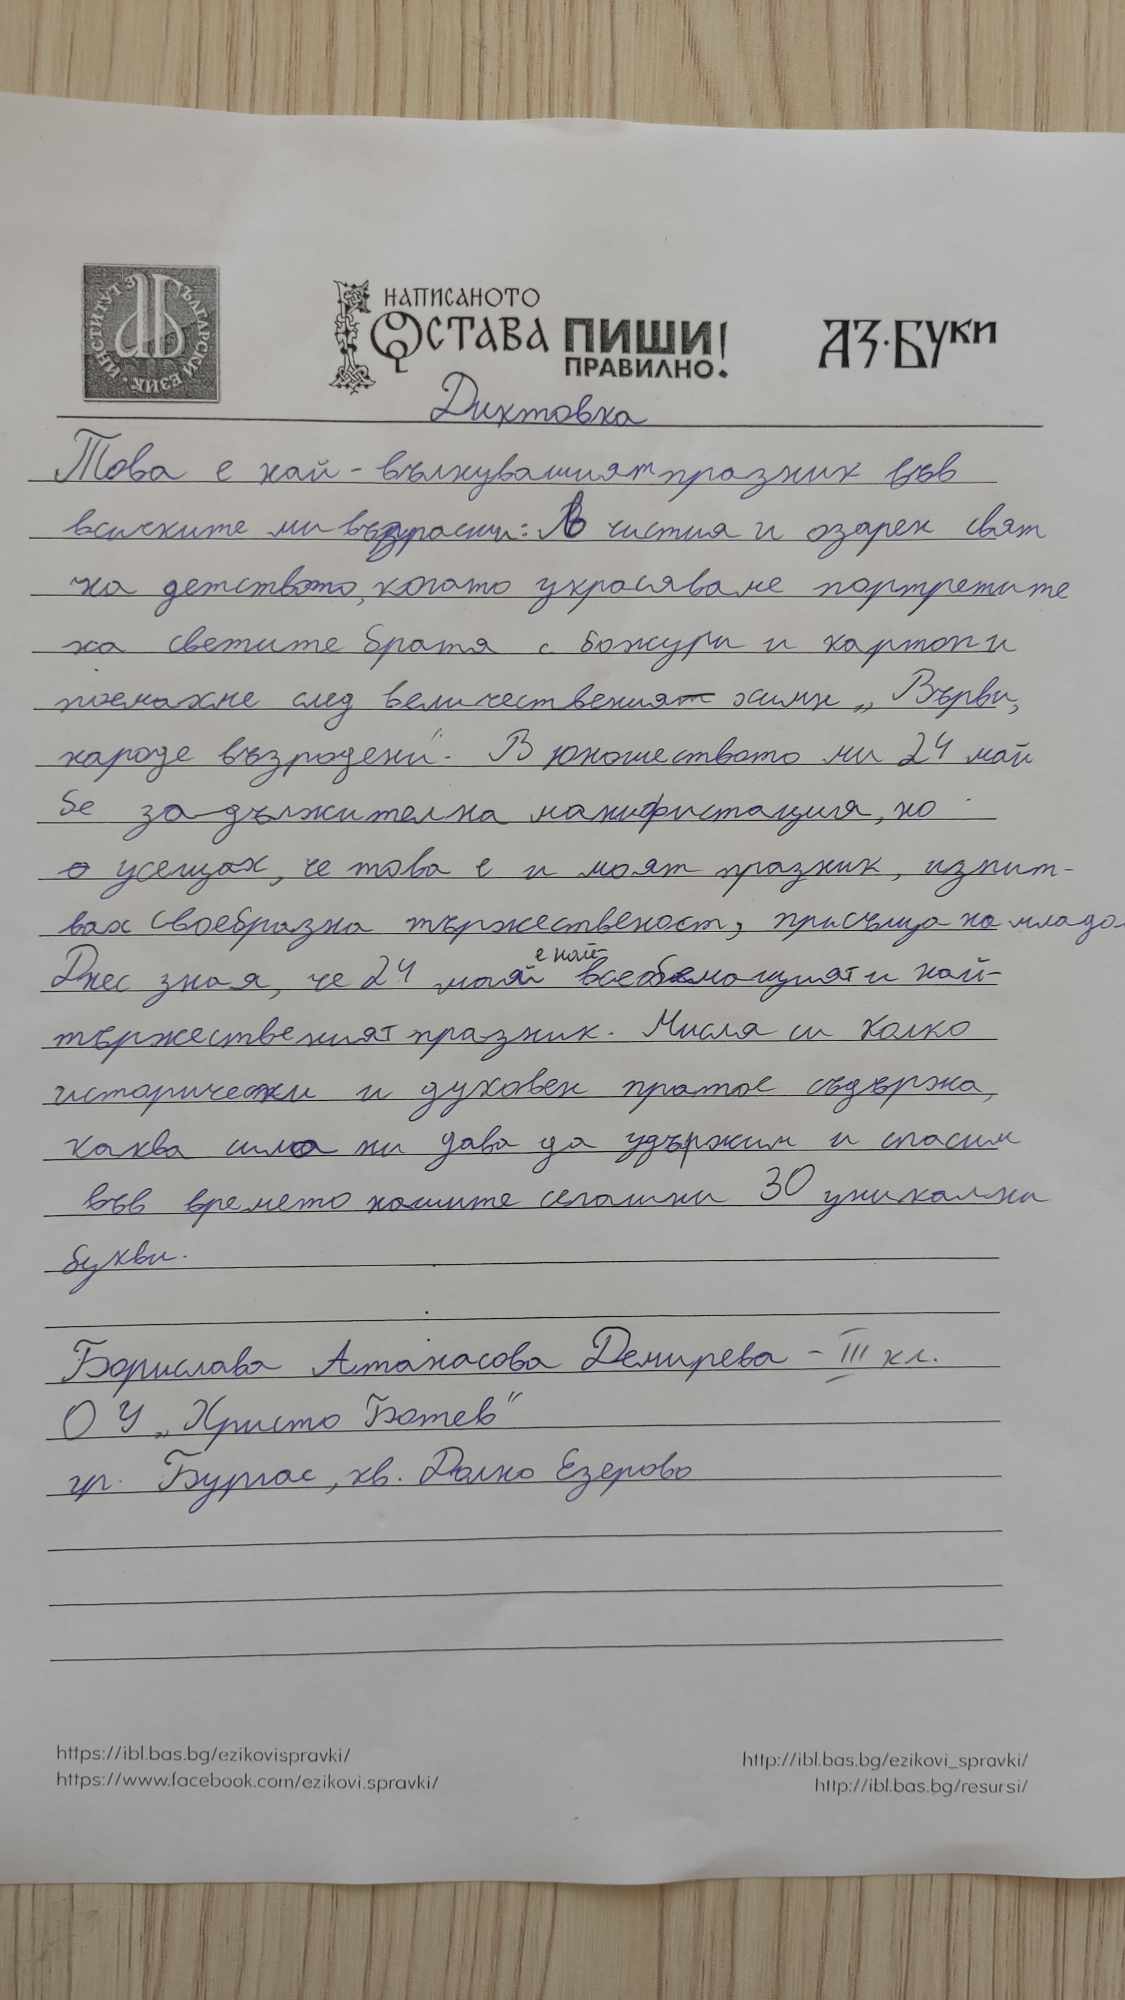 ИНСТИТУТ ЗА БЪЛГАРСКИ ЕЗИК
НАПИСАНОТО
ОСТАВА ПИШИ
ПРАВИЛНО!
АЗ·БУКИ
Диктовка
Това е най-вълнуващият празник във
всичките ми възрасти: В чистия и озарен свят
на детството, когато украсяваме портретите
на светите братя с божури и картопи
поемахме след величественият химн „Върви,
народе възродени". В юношеството ми 24 май
бе задължителна манифистация, но
усещах, че това е и моят празник, изпит-
вах своебразна тържественост, присъща на младо
Днес зная, че 24 май е най- всеобемащият и най-
тържественият празник. Мисля си колко
исторически и духовен пратос съдържа,
каква сила ни дава да удържим и спасим
във времето нашите сегашни 30 уникални
букви.
Борислава Атанасова Демирева – III кл.
ОУ „Христо Ботев"
гр. Бургас, кв. Долно Езерово
https://ibl.bas.bg/ezikovispravki/
https://www.facebook.com/ezikovi.spravki/
http://ibl.bas.bg/ezikovi_spravki/
http://ibl.bas.bg/resursi/